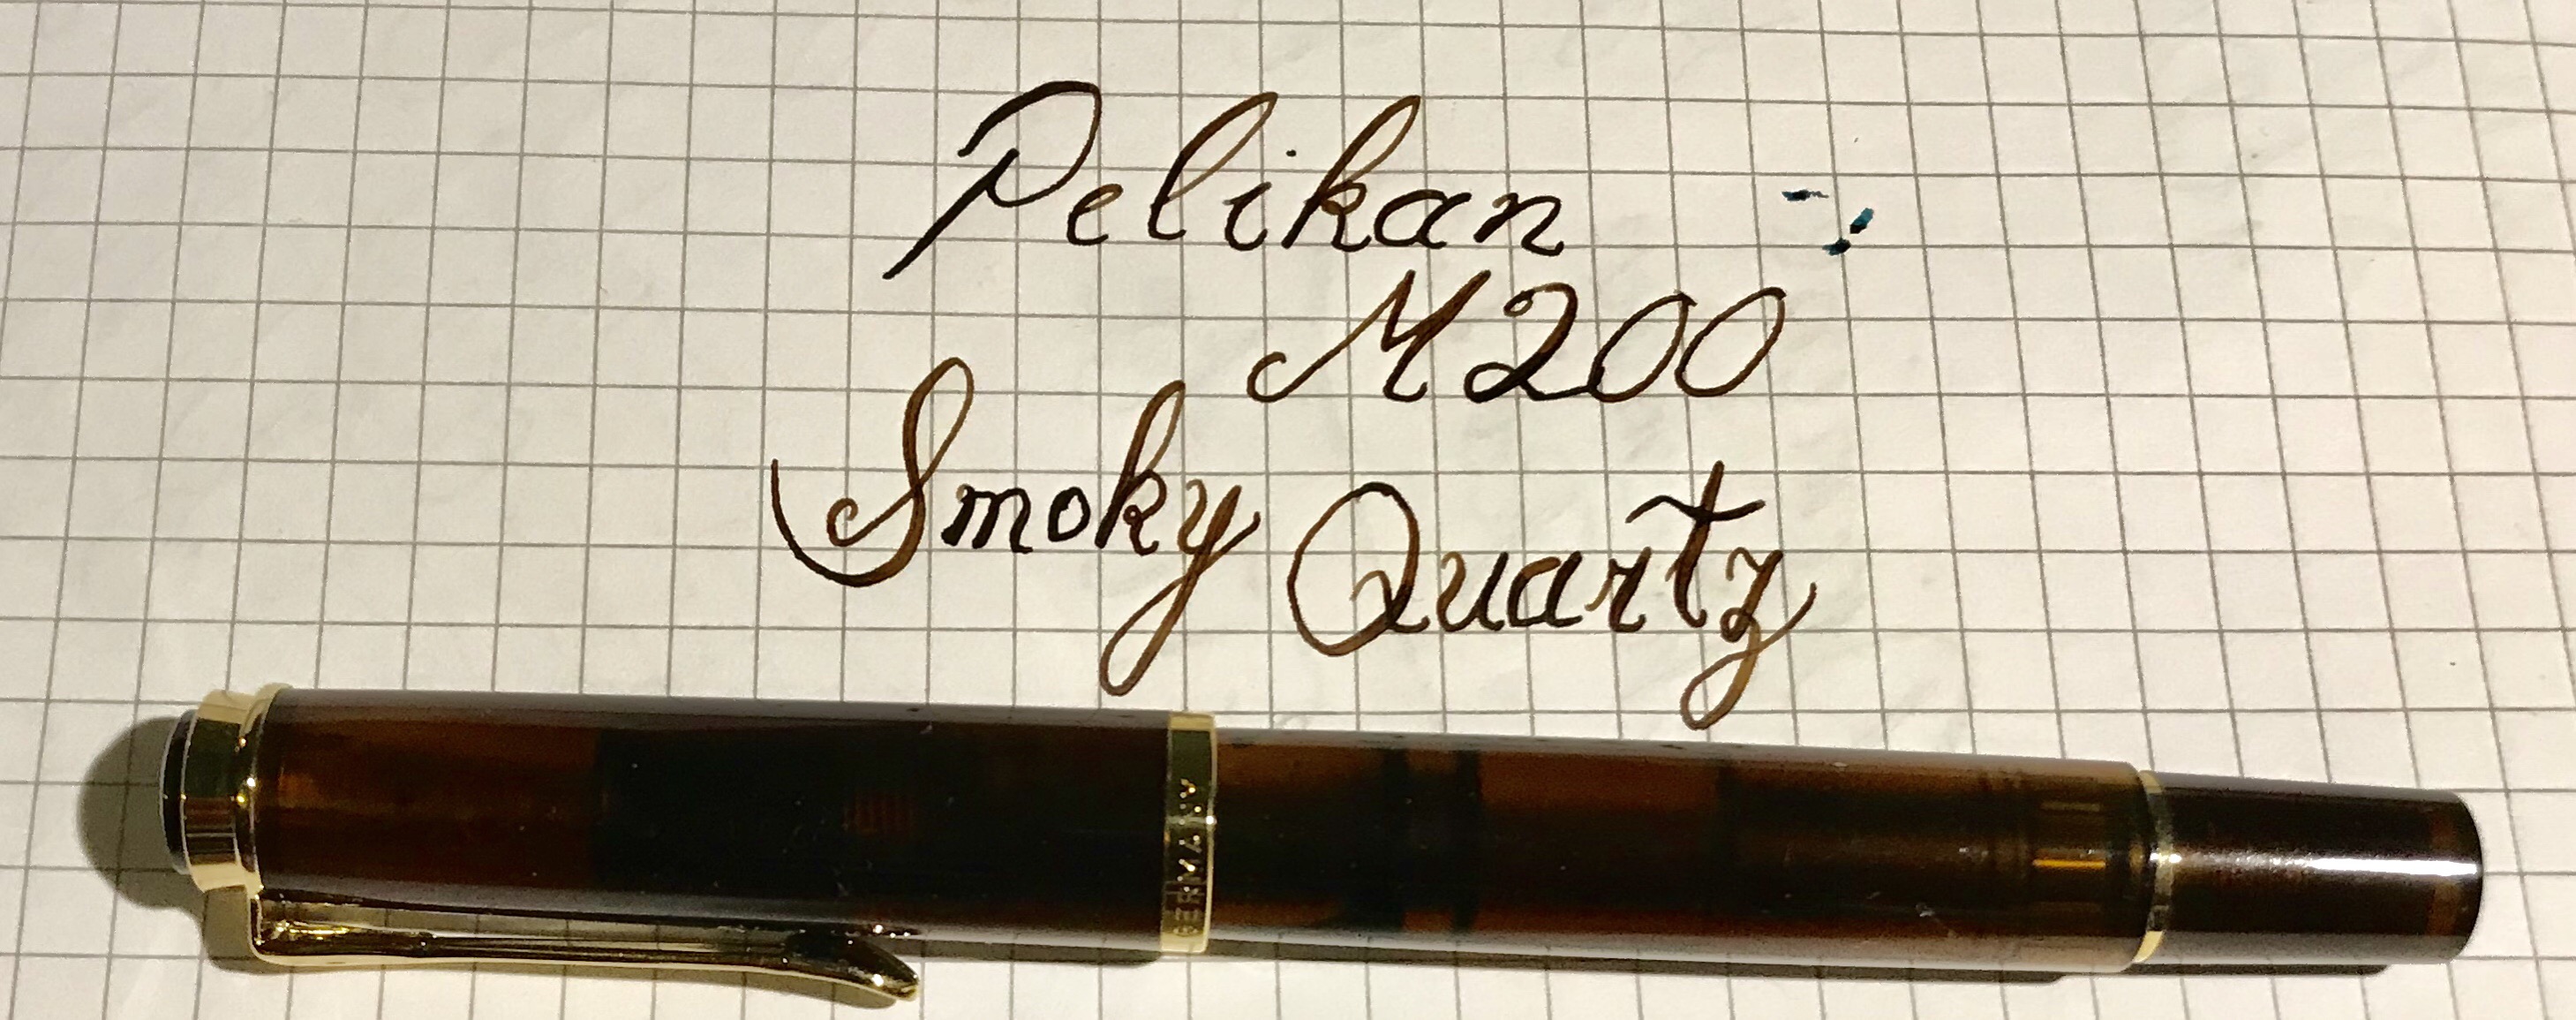 Pelikan
M200
Smoky Quartz
GERMANY